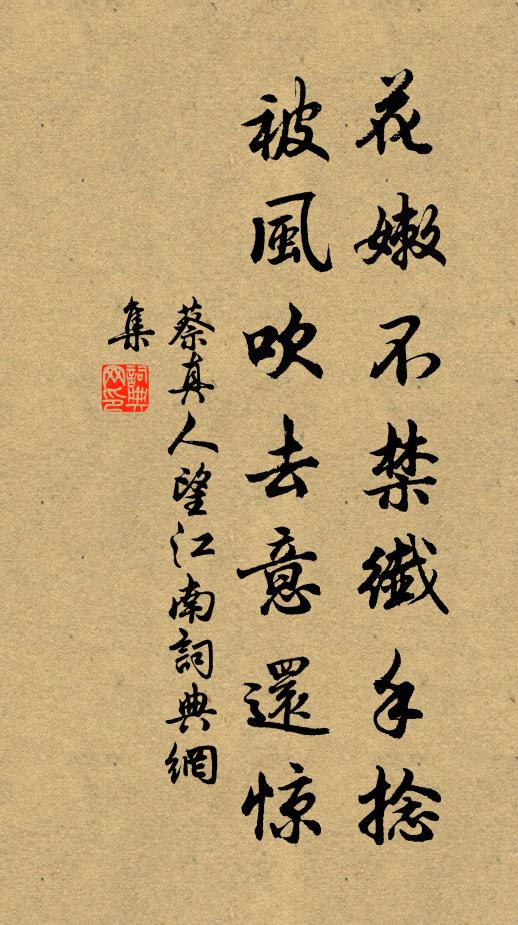 花嫩不禁纖手捻
被風吹去意還惊
蔡真人望江南詞典網
集
詞典網印